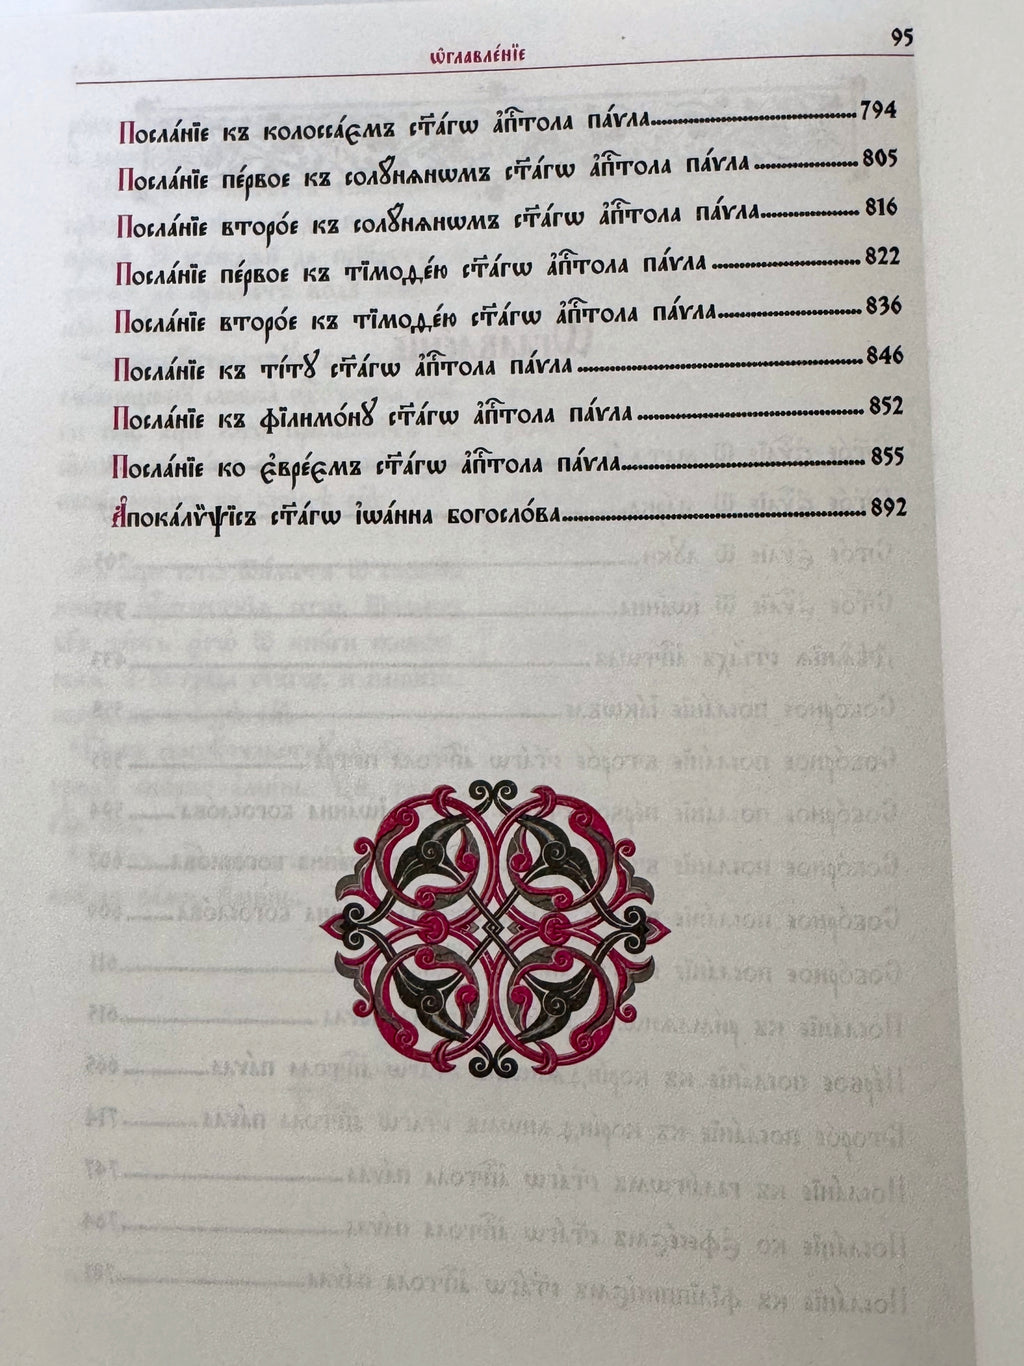 ѡ҆главле́нїе 95
Посла́нїе къ колосса́ємъ ст҃а́гѡ а҆пⷭ҇тола па́ѵла 794
Посла́нїе пе́рвое къ солꙋ́нѧнѡмъ ст҃а́гѡ а҆пⷭ҇тола па́ѵла 805
Посла́нїе второ́е къ солꙋ́нѧнѡмъ ст҃а́гѡ а҆пⷭ҇тола па́ѵла 816
Посла́нїе пе́рвое къ тїмоѳе́ю ст҃а́гѡ а҆пⷭ҇тола па́ѵла 822
Посла́нїе второ́е къ тїмоѳе́ю ст҃а́гѡ а҆пⷭ҇тола па́ѵла 836
Посла́нїе къ ті́тꙋ ст҃а́гѡ а҆пⷭ҇тола па́ѵла 846
Посла́нїе къ фїлимо́нꙋ ст҃а́гѡ а҆пⷭ҇тола па́ѵла 852
Посла́нїе ко є҆вре́ємъ ст҃а́гѡ а҆пⷭ҇тола па́ѵла 855
А҆пока́лѷѱїсъ ст҃а́гѡ і҆ѡа́нна богосло́ва 892